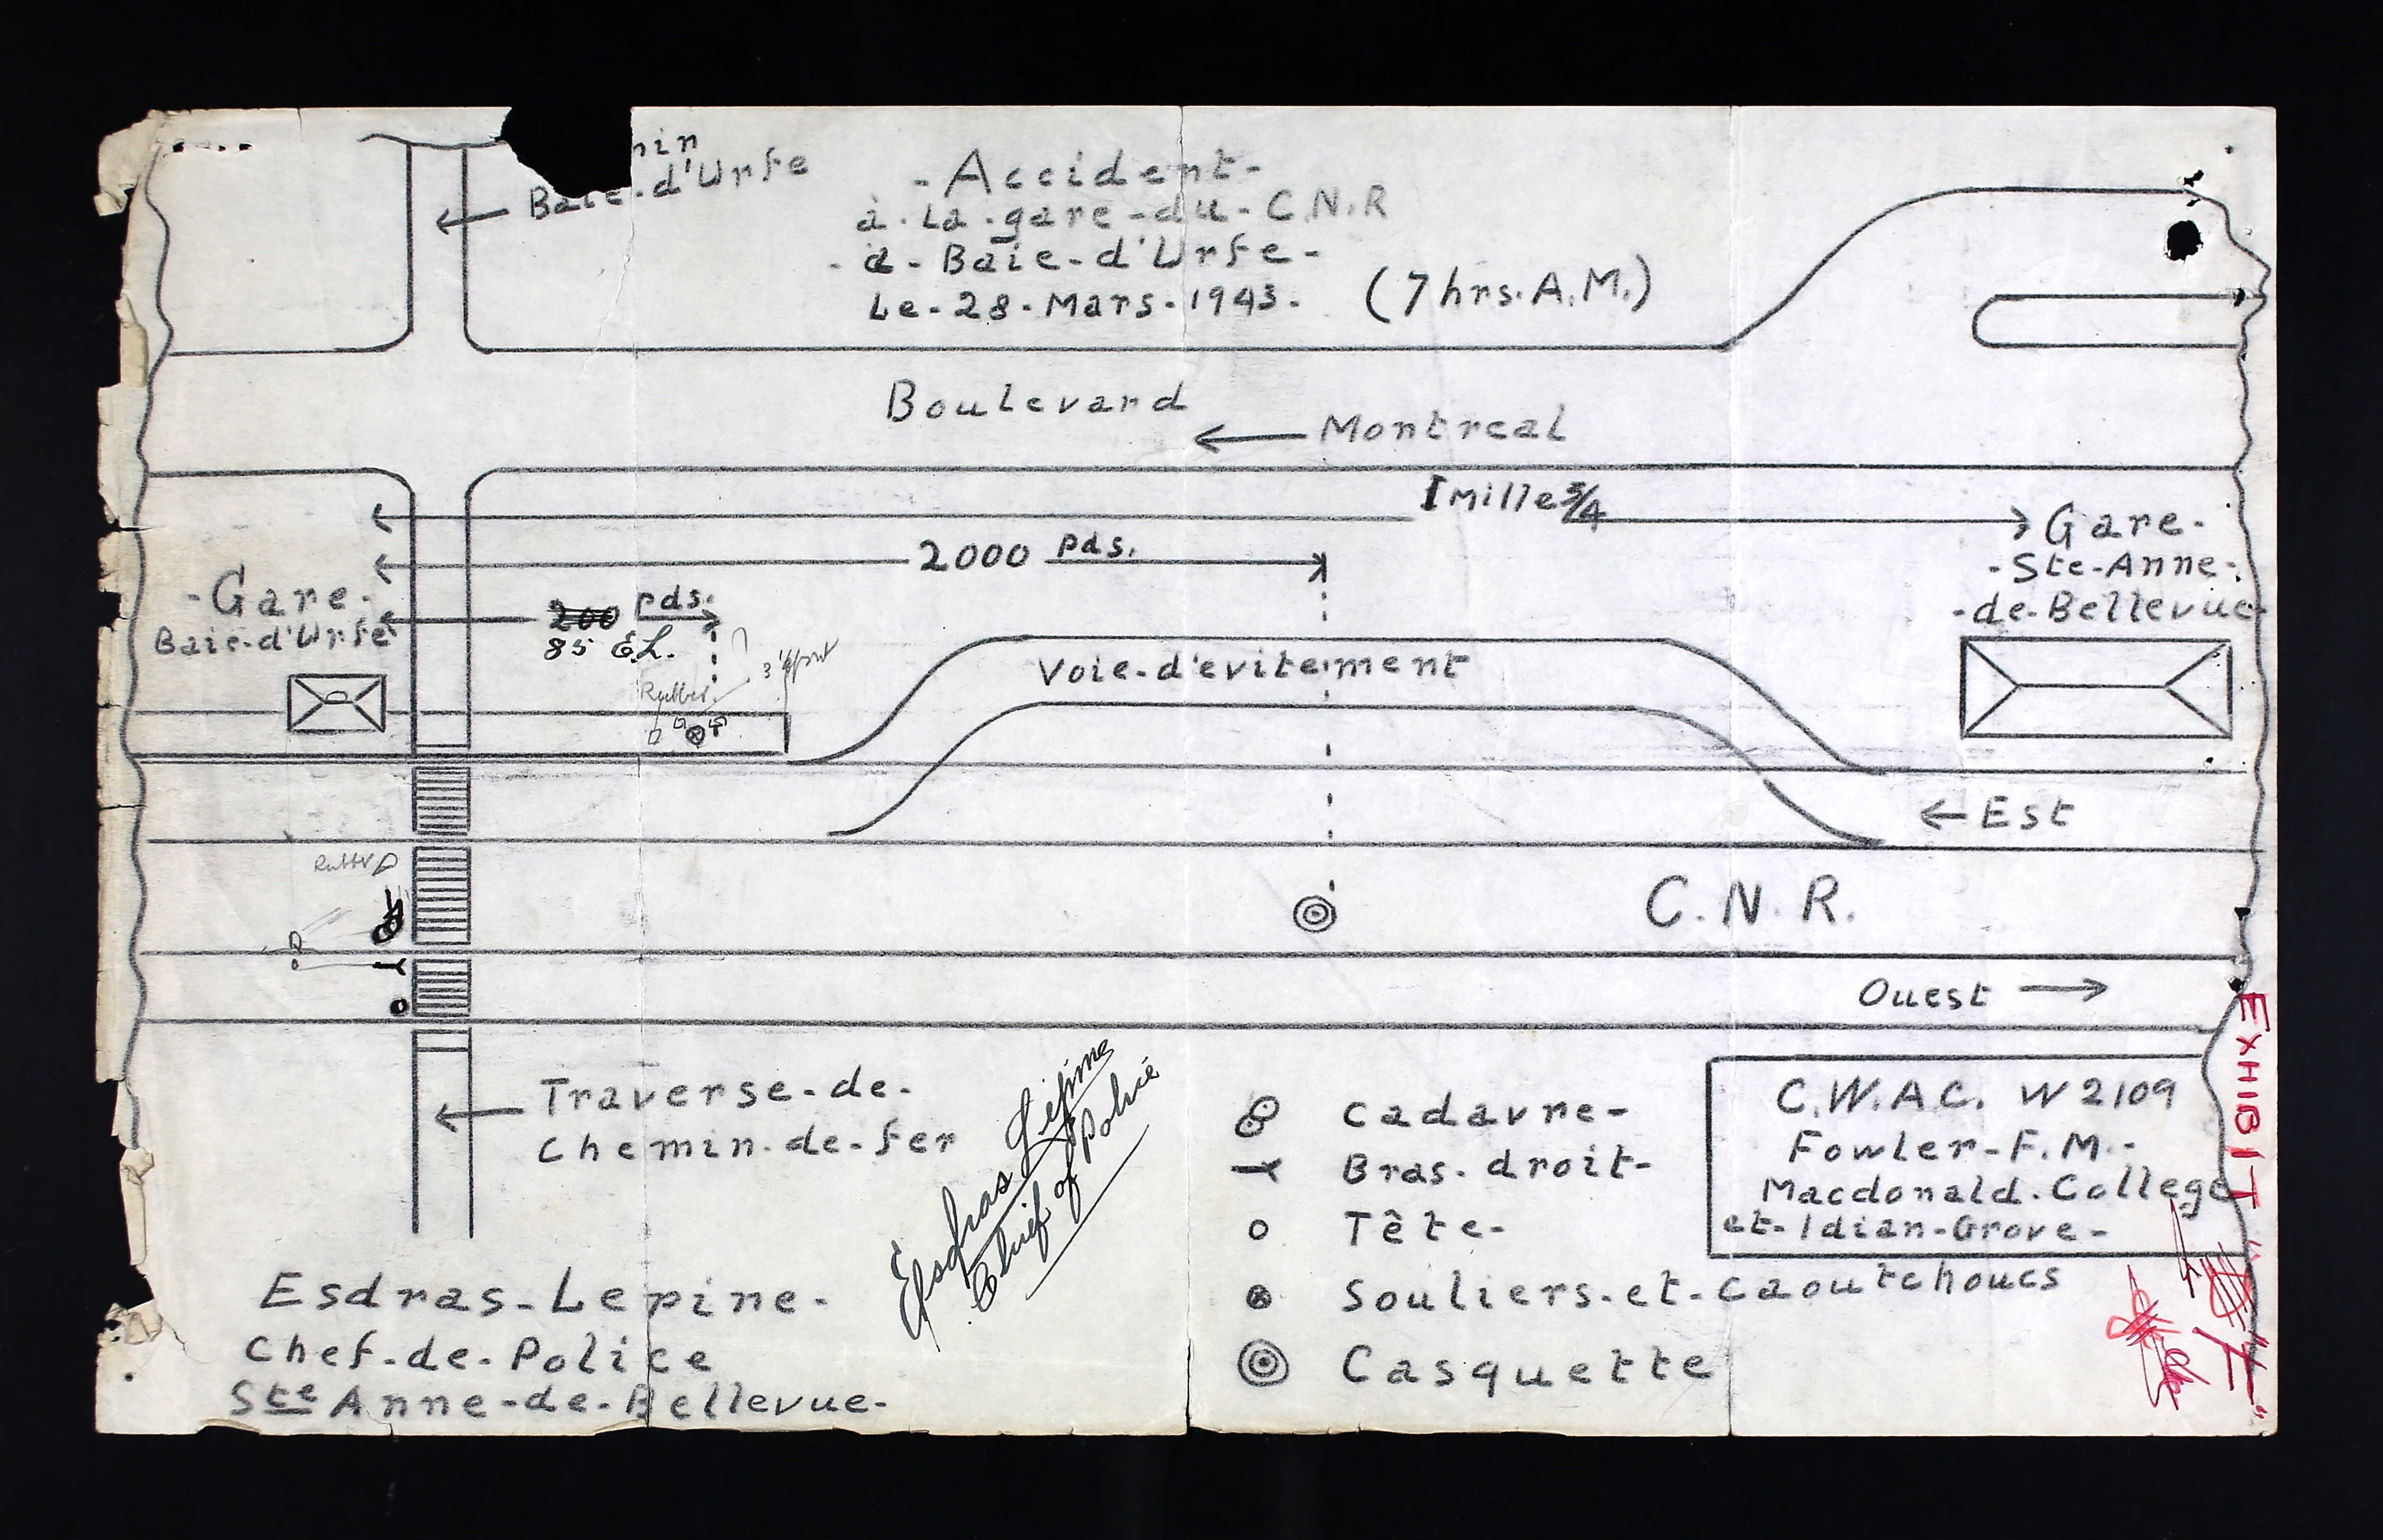 Baie-d'Urfe
- Accident -
à-la-gare-du-C.N.R
-à-Baie-d'Urfe-
Le-28-Mars-1943. (7 hrs. A.M.)
Boulevard
← Montreal
1 Mille 3/4
2000 pds.
Gare-
-Ste-Anne-
-de-Bellevue
-Gare-
Baie-d'Urfe
200 pds.
85 E.L.
Rubber
Voie-d'evitement
← Est
Rubber
C.N.R.
Ouest →
Traverse-de-
Chemin-de-fer
Esdras Lepine
Chief of Police
Cadavre-
Bras-droit-
Tête-
Souliers-et-caoutchoucs
Casquette
C.W.A.C. W2109
Fowler-F.M.-
Macdonald-College
et-Idian-Grove-
Esdras-Lepine-
Chef-de-Police
Ste Anne-de-Bellevue-
EXHIBIT